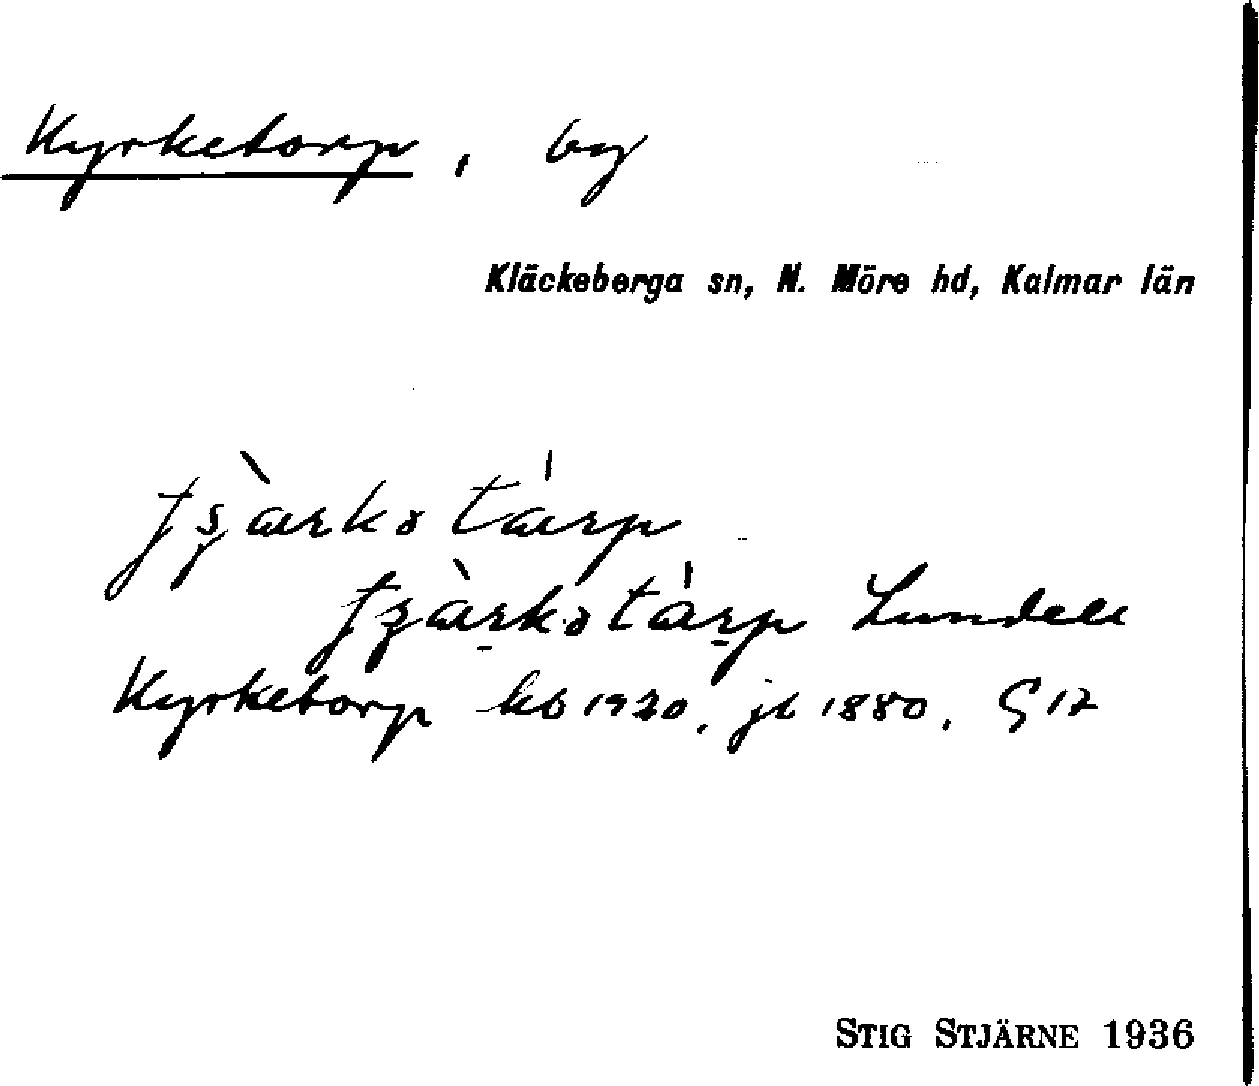 Kyrketorp, by
Kläckeberga sn, N. Möre hd, Kalmar län
Lundell
Kyrketorp kb 1920, jb 1880, G 12
STIG STJÄRNE 1936